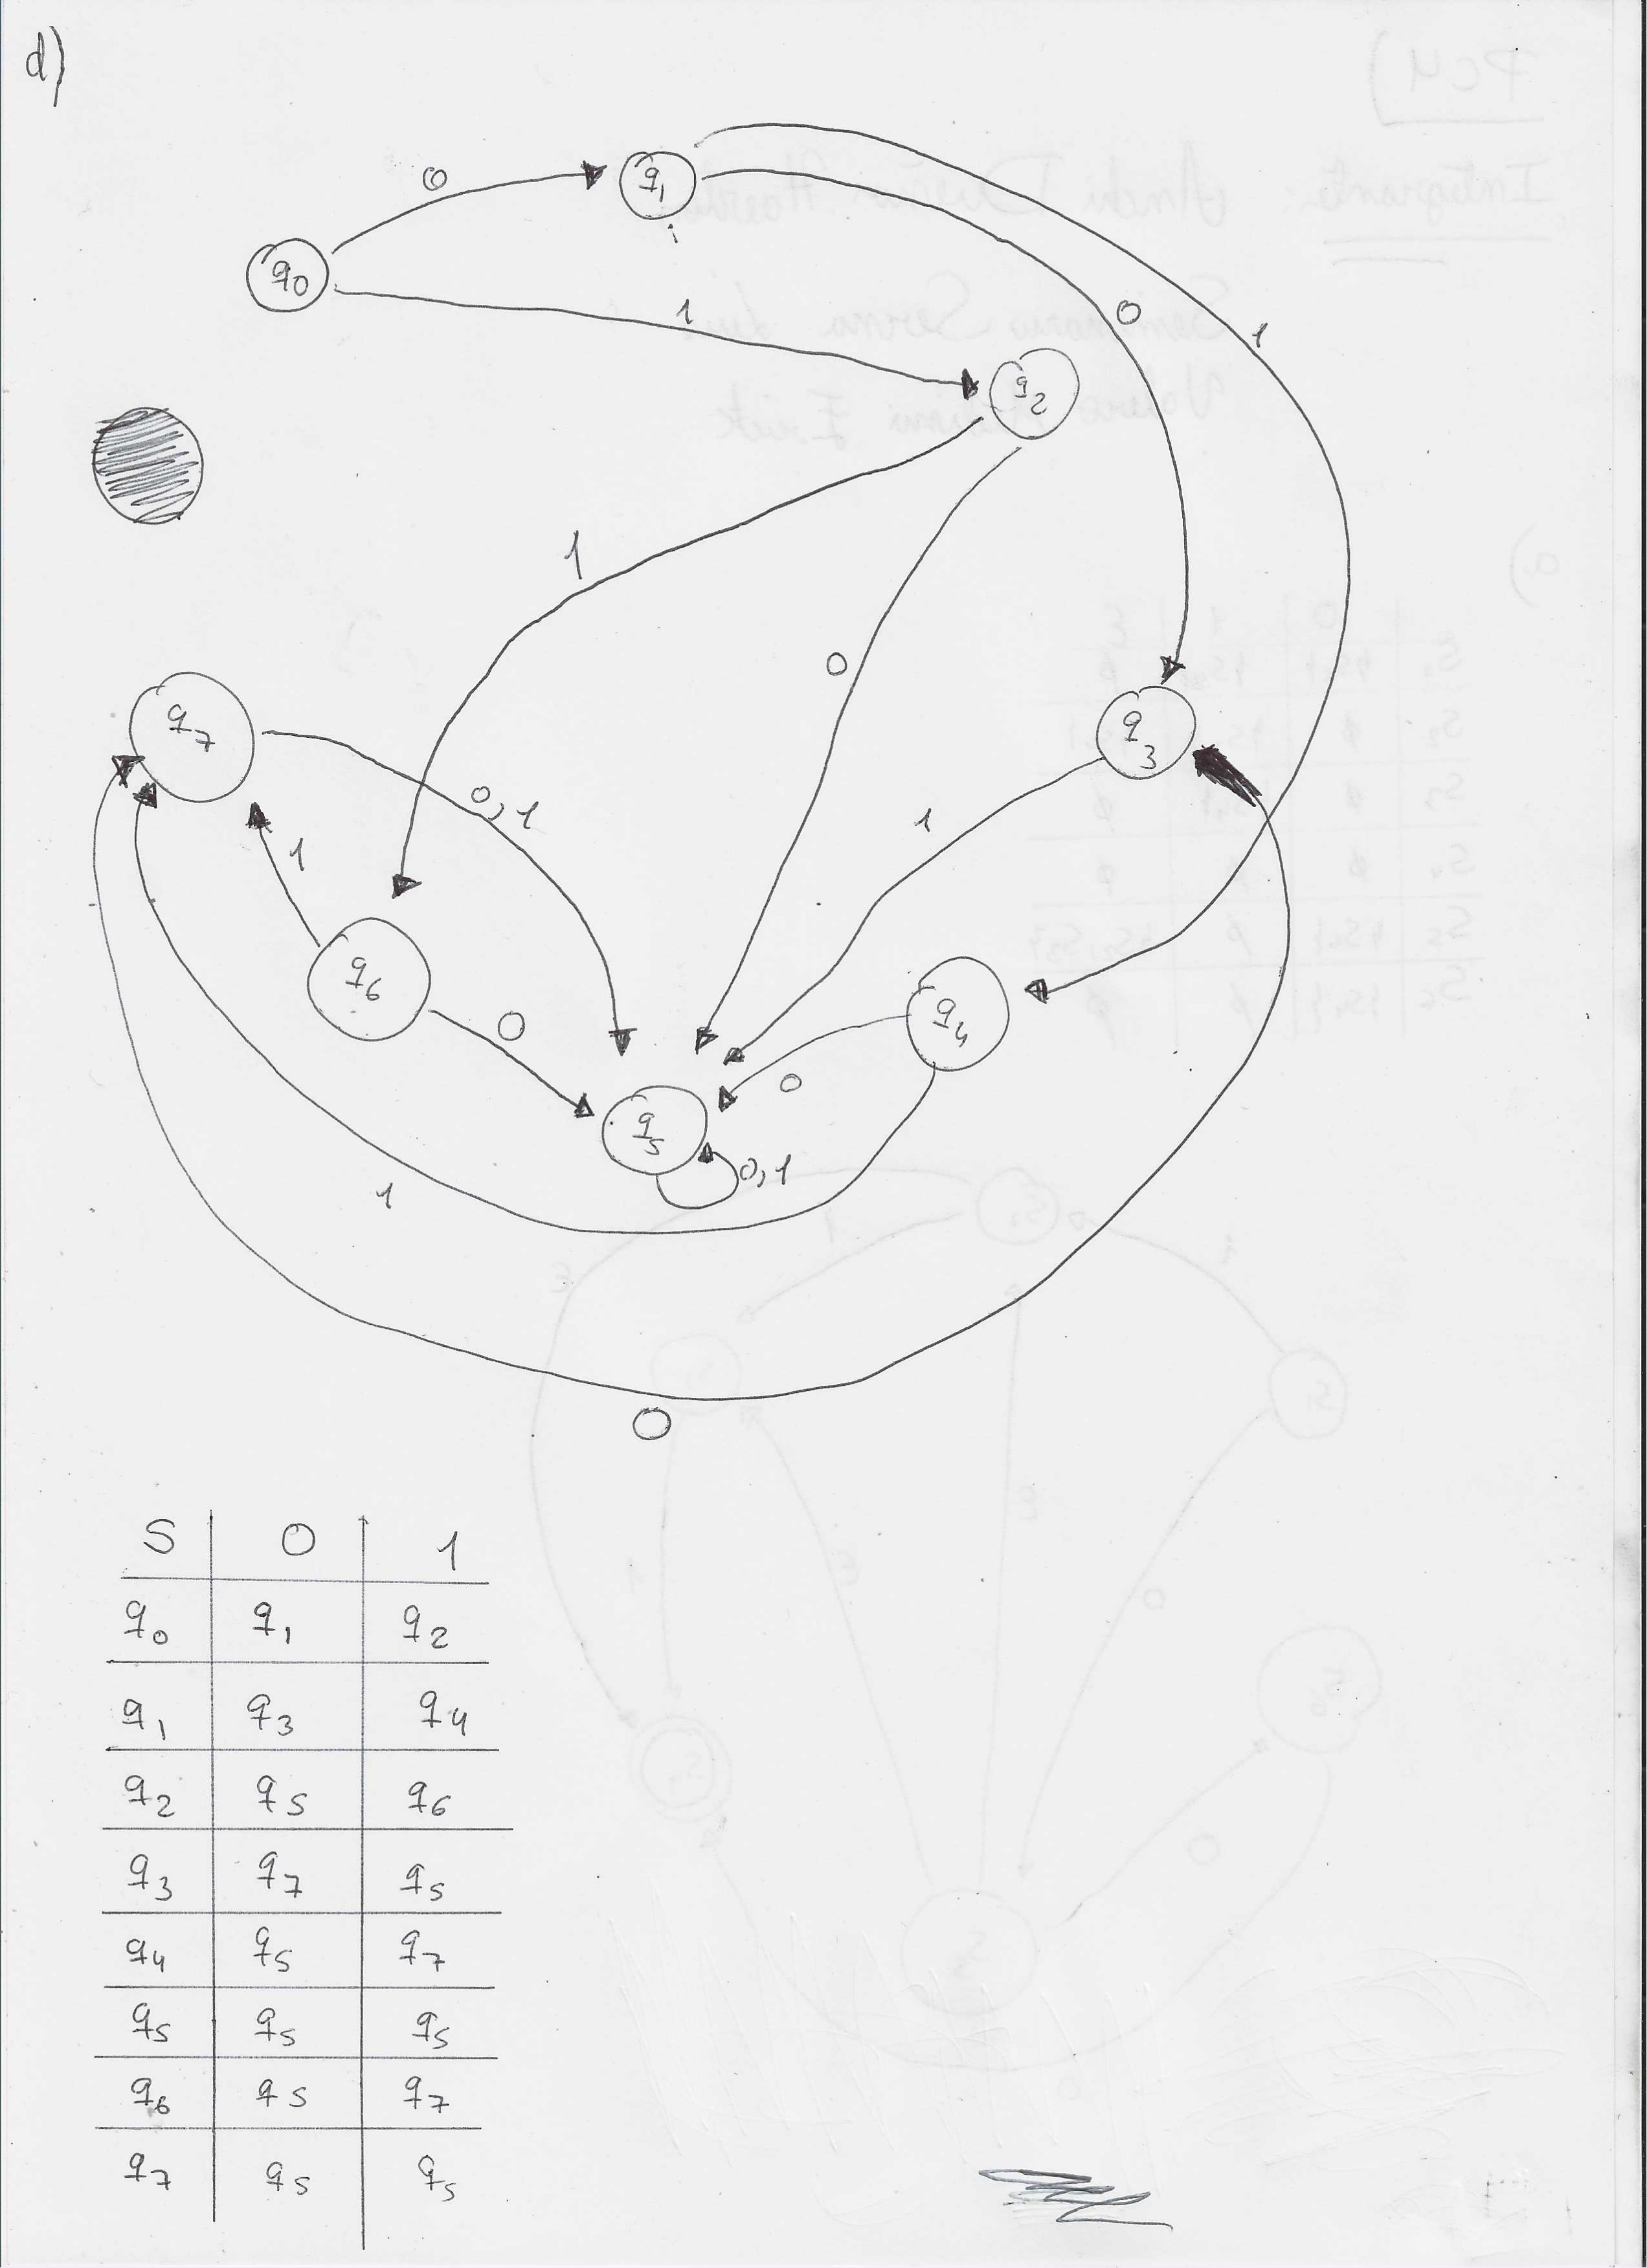 d)
0
q1
q0
1
0
1
q2
1
0
q7
q3
0,1
1
1
q6
0
q4
0
q5
0,1
1
0
S 0 1
q0 q1 q2
q1 q3 q4
q2 q5 q6
q3 q7 q5
q4 q5 q7
q5 q5 q5
q6 q5 q7
q7 q5 q5